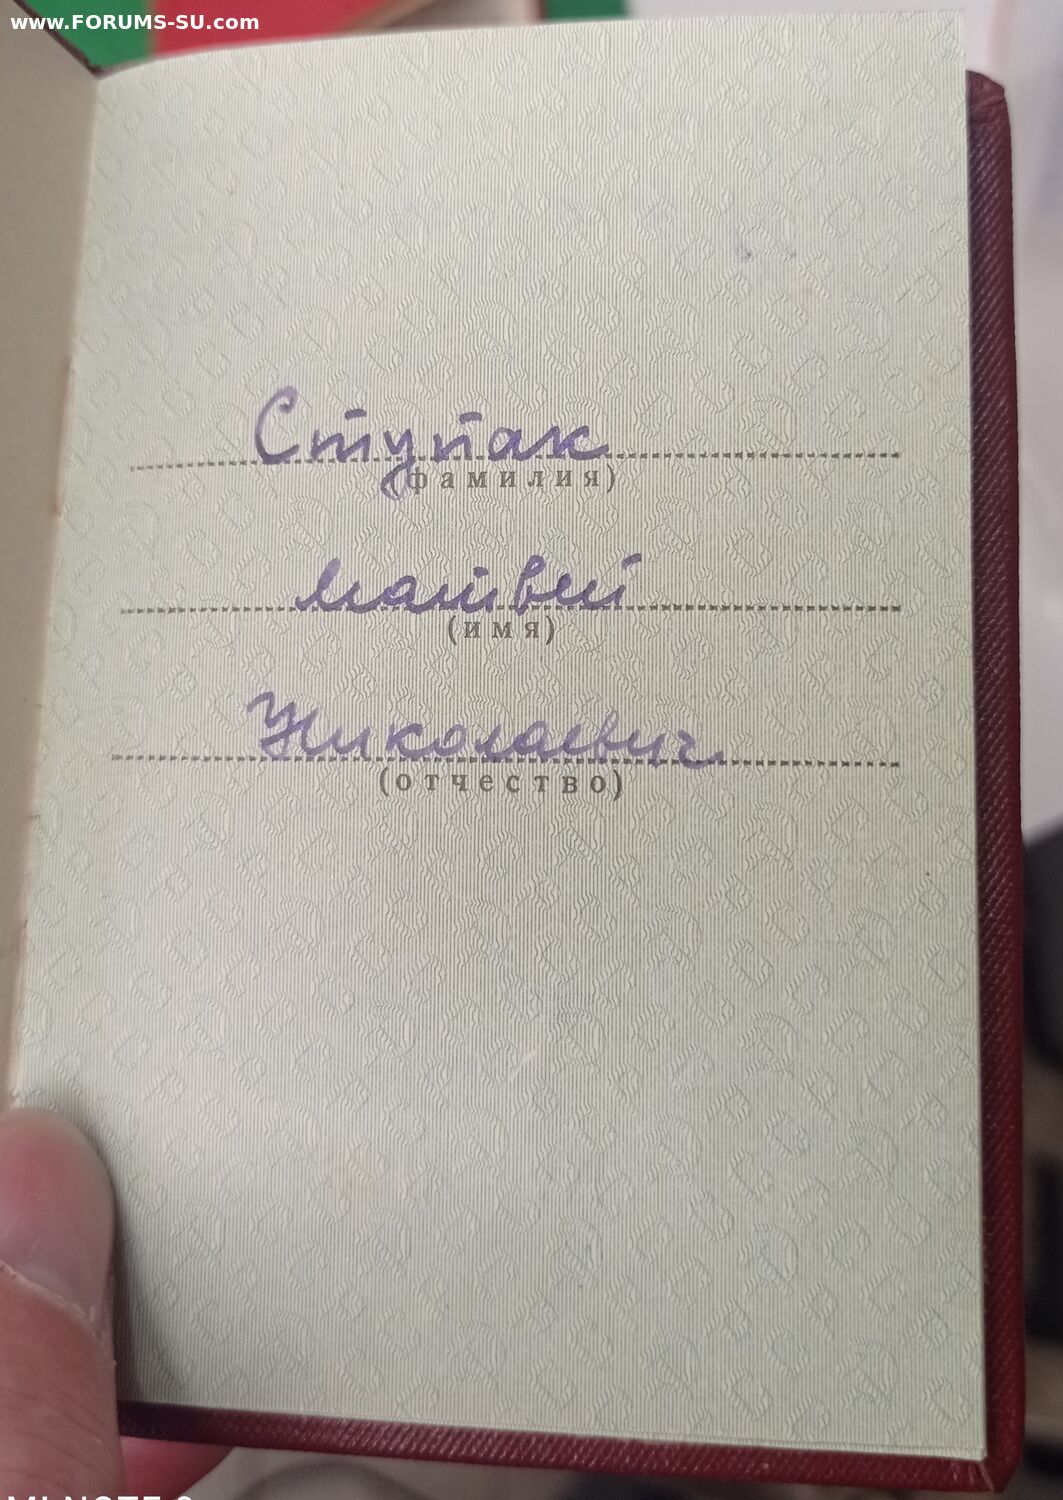 www.FORUMS-SU.com
Ступак
(фамилия)
Матвей
(имя)
Николаевич
(отчество)